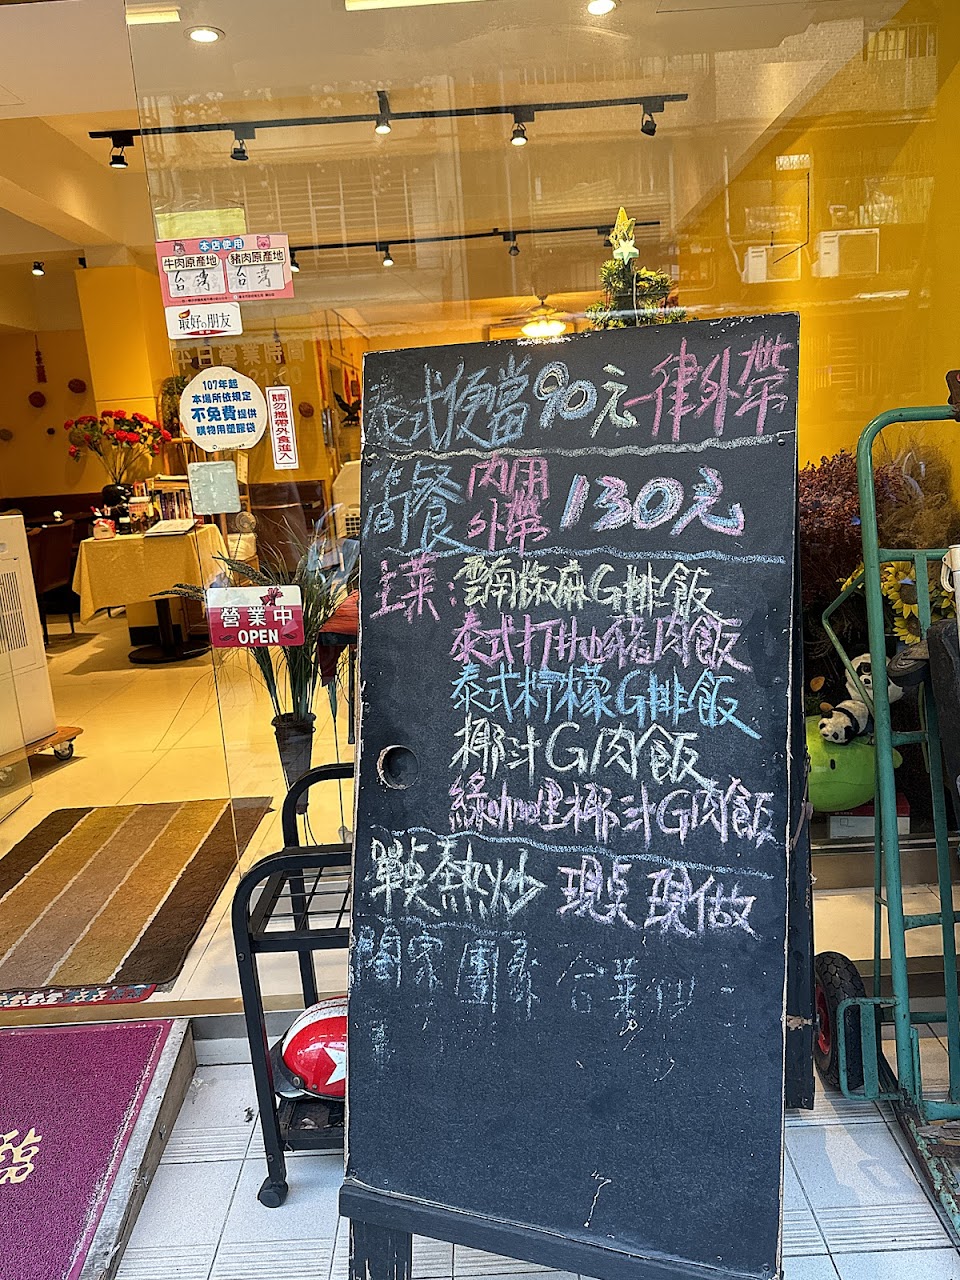 本店使用
牛肉原產地 豬肉原產地
台灣 台灣
最好の朋友
本日營業時間
107年起
本場所依規定
不免費提供
購物用塑膠袋
請勿攜帶外食進入
營業中
OPEN
泰式便當90元一律外帶
套餐 內用 外帶 130元
主菜:雲南椒麻G排飯
泰式打抛豬肉飯
泰式柠檬G排飯
椰汁G肉飯
綠咖哩椰汁G肉飯
單點熱炒 現点現做
闔家團聚 合菜